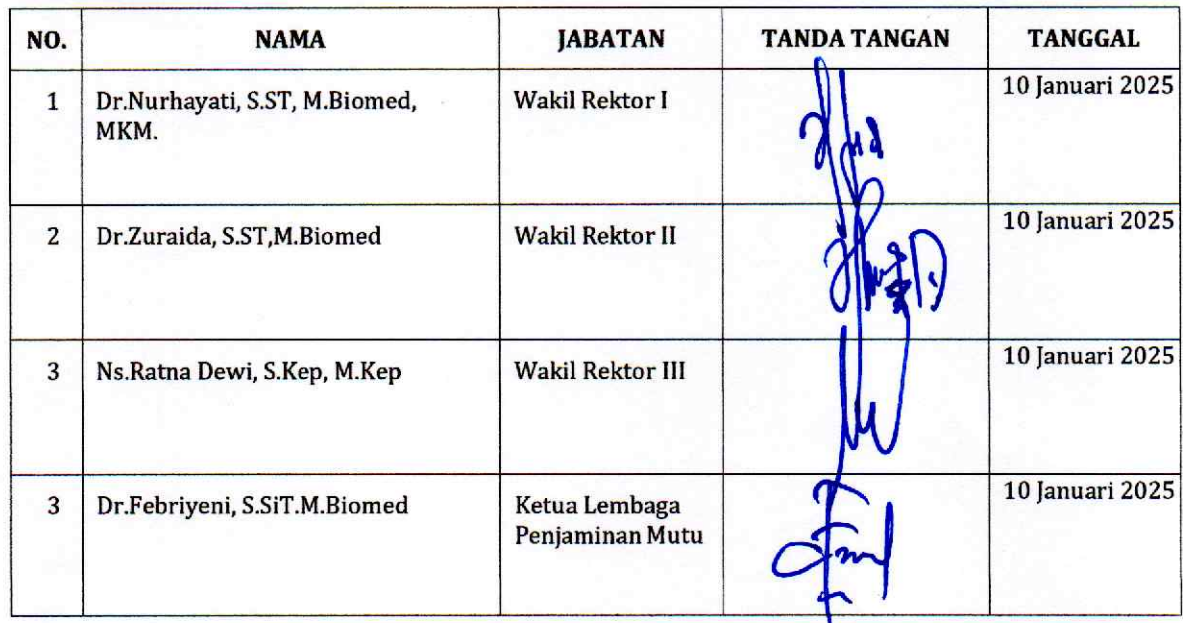 NO. NAMA JABATAN TANDA TANGAN TANGGAL
1 Dr.Nurhayati, S.ST, M.Biomed, Wakil Rektor I 10 Januari 2025
MKM.
2 Dr.Zuraida, S.ST,M.Biomed Wakil Rektor II 10 Januari 2025
3 Ns.Ratna Dewi, S.Kep, M.Kep Wakil Rektor III 10 Januari 2025
3 Dr.Febriyeni, S.SiT.M.Biomed Ketua Lembaga 10 Januari 2025
Penjaminan Mutu